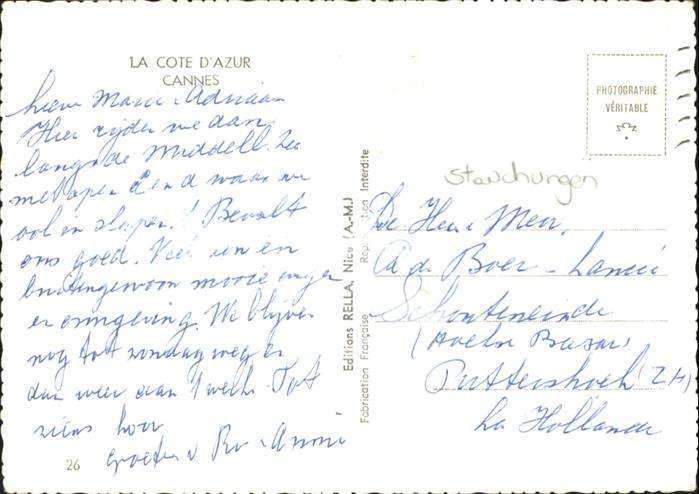 LA COTE D'AZUR
CANNES
Lieve Marie & Adriaan
Hier rijden we dan
langs de Middell. Zee
met open
ook in slapen. 't Bevalt
ons goed. Veel zon en
buitengewoon mooie
omgeving. We blijven
nog tot zondag weg
dan weer aan 't werk. Tot
ziens hoor
Groeten v
26
Editions RELLA, Nice
Fabrication Française
Interdite
PHOTOGRAPHIE
VÉRITABLE
Stauchungen
De Heer & Mevr.
A de Boer - Lanni
Schouteneinde
Puttershoek (ZH)
Hollande